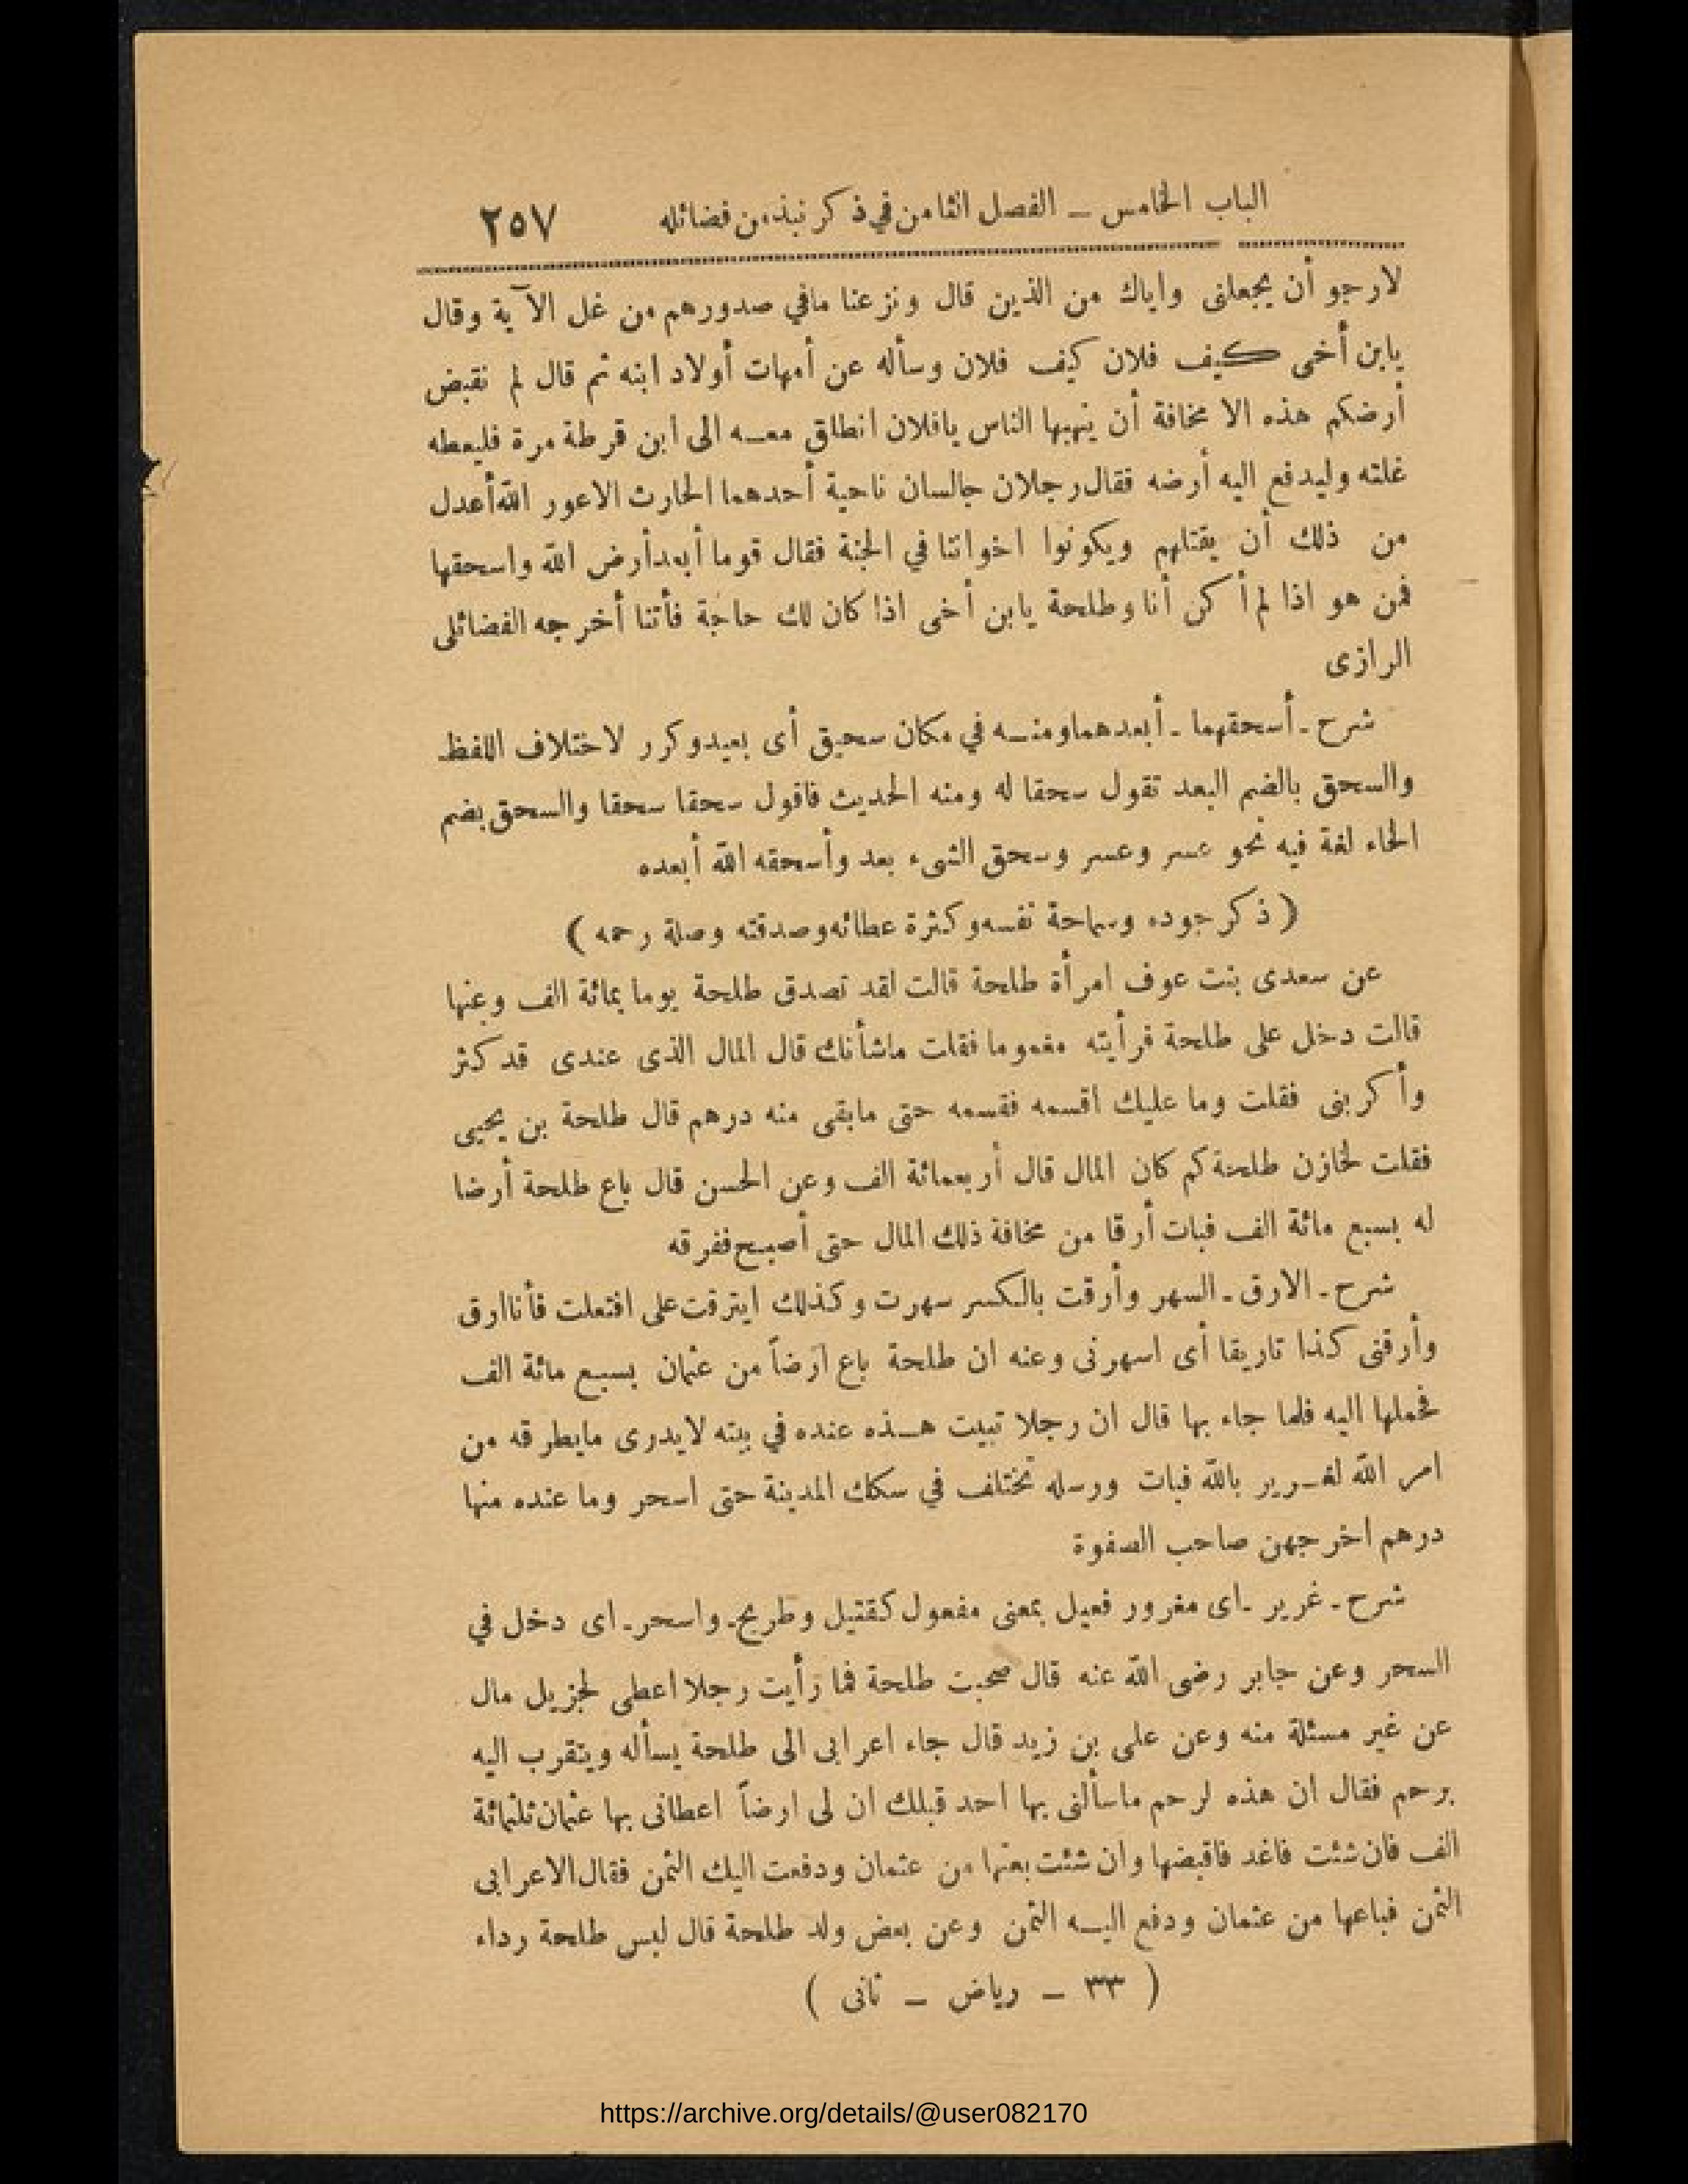 الباب الخامس ــ الفصل الثامن في ذكر نبذ من فضائله ٢٥٧
لارجو أن يجعلنى واياك من الذين قال ونزعنا مافي صدورهم من غل الآية وقال
يابن أخى كيف فلان كيف فلان وسأله عن أمهات أولاد ابنه ثم قال لم نقبض
أرضكم هذه الا مخافة أن ينهبها الناس يافلان انطلق معه الى ابن قرطة مرة فليعطه
غلته وليدفع اليه أرضه فقال رجلان جالسان ناحية أحدهما الحارث الاعور الله أعدل
من ذلك أن يقتلهم ويكونوا اخواننا في الجنة فقال قوما أبعد أرض الله واسحقها
فمن هو اذا لم أكن أنا وطلحة يابن أخى اذا كان لك حاجة فأتنا أخرجه الفضائلى
الرازى
شرح ـ أسحقهما ـ أبعدهما ومنه في مكان سحيق أى بعيد وكرر لاختلاف اللفظ
والسحق بالضم البعد تقول سحقا له ومنه الحديث فاقول سحقا سحقا والسحق بضم
الحاء لغة فيه نحو عسر وعسر وسحق الشىء بعد وأسحقه الله أبعده
( ذكر جوده وسماحة نفسه وكثرة عطائه وصدقته وصلة رحمه )
عن سعدى بنت عوف امرأة طلحة قالت لقد تصدق طلحة يوما بمائة الف وعنها
قالت دخل على طلحة فرأيته مغموما فقلت ماشأنك قال المال الذى عندى قد كثر
وأكربنى فقلت وما عليك اقسمه فقسمه حتى مابقى منه درهم قال طلحة بن يحيى
فقلت لخازن طلحة كم كان المال قال أربعمائة الف وعن الحسن قال باع طلحة أرضا
له بسبع مائة الف فبات أرقا من مخافة ذلك المال حتى أصبح ففرقه
شرح ـ الارق ـ السهر وأرقت بالكسر سهرت وكذلك ايترقت على افتعلت فأنا ارق
وأرقنى كذا تاريقا أى اسهرنى وعنه ان طلحة باع ارضاً من عثمان بسبع مائة الف
فحملها اليه فلما جاء بها قال ان رجلا تبيت هذه عنده في بيته لايدرى مايطرقه من
امر الله لغرير بالله فبات ورسله تختلف في سكك المدينة حتى اسحر وما عنده منها
درهم اخرجهن صاحب الصفوة
شرح ـ غرير ـ اى مغرور فعيل بمعنى مفعول كقتيل وطريح ـ واسحر ـ اى دخل في
السحر وعن جابر رضى الله عنه قال صحبت طلحة فما رأيت رجلا اعطى لجزيل مال
عن غير مسئلة منه وعن على بن زيد قال جاء اعرابى الى طلحة يسأله ويتقرب اليه
برحم فقال ان هذه لرحم ماسألنى بها احد قبلك ان لى ارضاً اعطانى بها عثمان ثلثمائة
الف فان شئت فاغد فاقبضها وان شئت بعتها من عثمان ودفعت اليك الثمن فقال الاعرابى
الثمن فباعها من عثمان ودفع اليه الثمن وعن بعض ولد طلحة قال لبس طلحة رداء
( ٣٣ ــ رياض ــ ثانى )
https://archive.org/details/@user082170